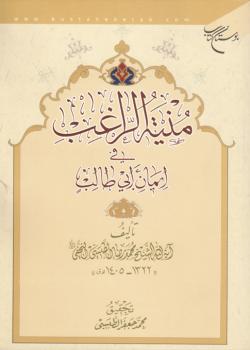 www.bustaneketab.com
بوستان کتاب
منية الراغب
في
إيمان أبي طالب
تأليف
آية الله الشيخ محمد رضا الطبسي النجفي
١٣٢٢ - ١٤٠٥ ق
تحقيق
محمد جعفر الطبسي